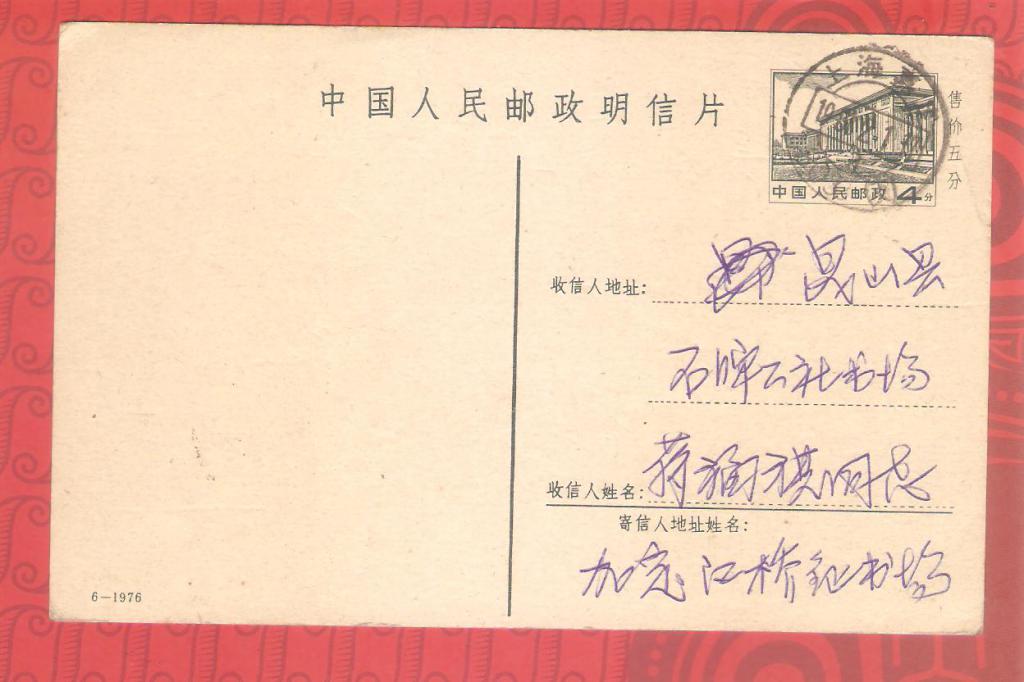 中国人民邮政明信片
上海
售价五分
中国人民邮政 4分
收信人地址: 昆山县
石牌公社书场
收信人姓名: 蒋 祺同志
寄信人地址姓名:
加定 江桥 书场
6—1976